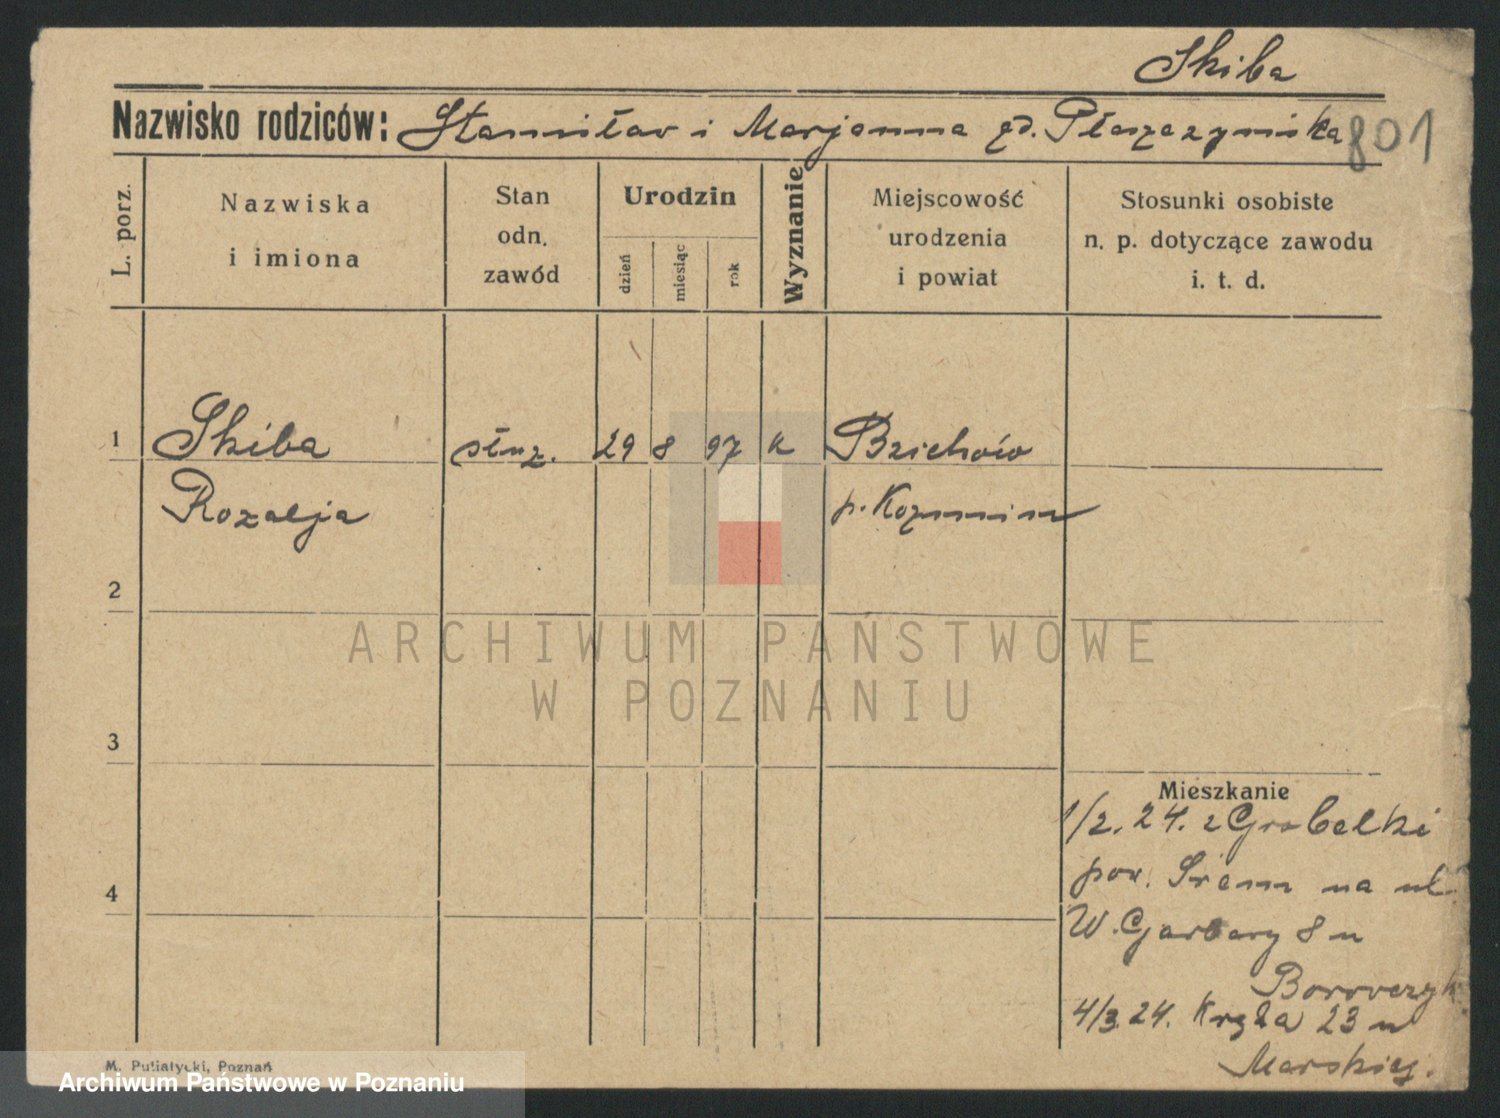 Skiba
Nazwisko rodziców: Stanisław i Marjanna zd. Płaszczyńska 801
L. porz.
Nazwiska
i imiona
Stan
odn.
zawód
Urodzin
dzień
miesiąc
rok
Wyznanie
Miejscowość
urodzenia
i powiat
Stosunki osobiste
n. p. dotyczące zawodu
i. t. d.
1 Skiba służ. 29 8 97 k
Rozalja p. Kozmin
2
3
4
ARCHIWUM PAŃSTWOWE
W POZNANIU
Mieszkanie
1/2. 24. z Grobelki
pow. Śrem na ul.
W. Garbary 8 u
Borowczyk
4/3. 24. 23 u
M. Putiatycki, Poznań
Archiwum Państwowe w Poznaniu